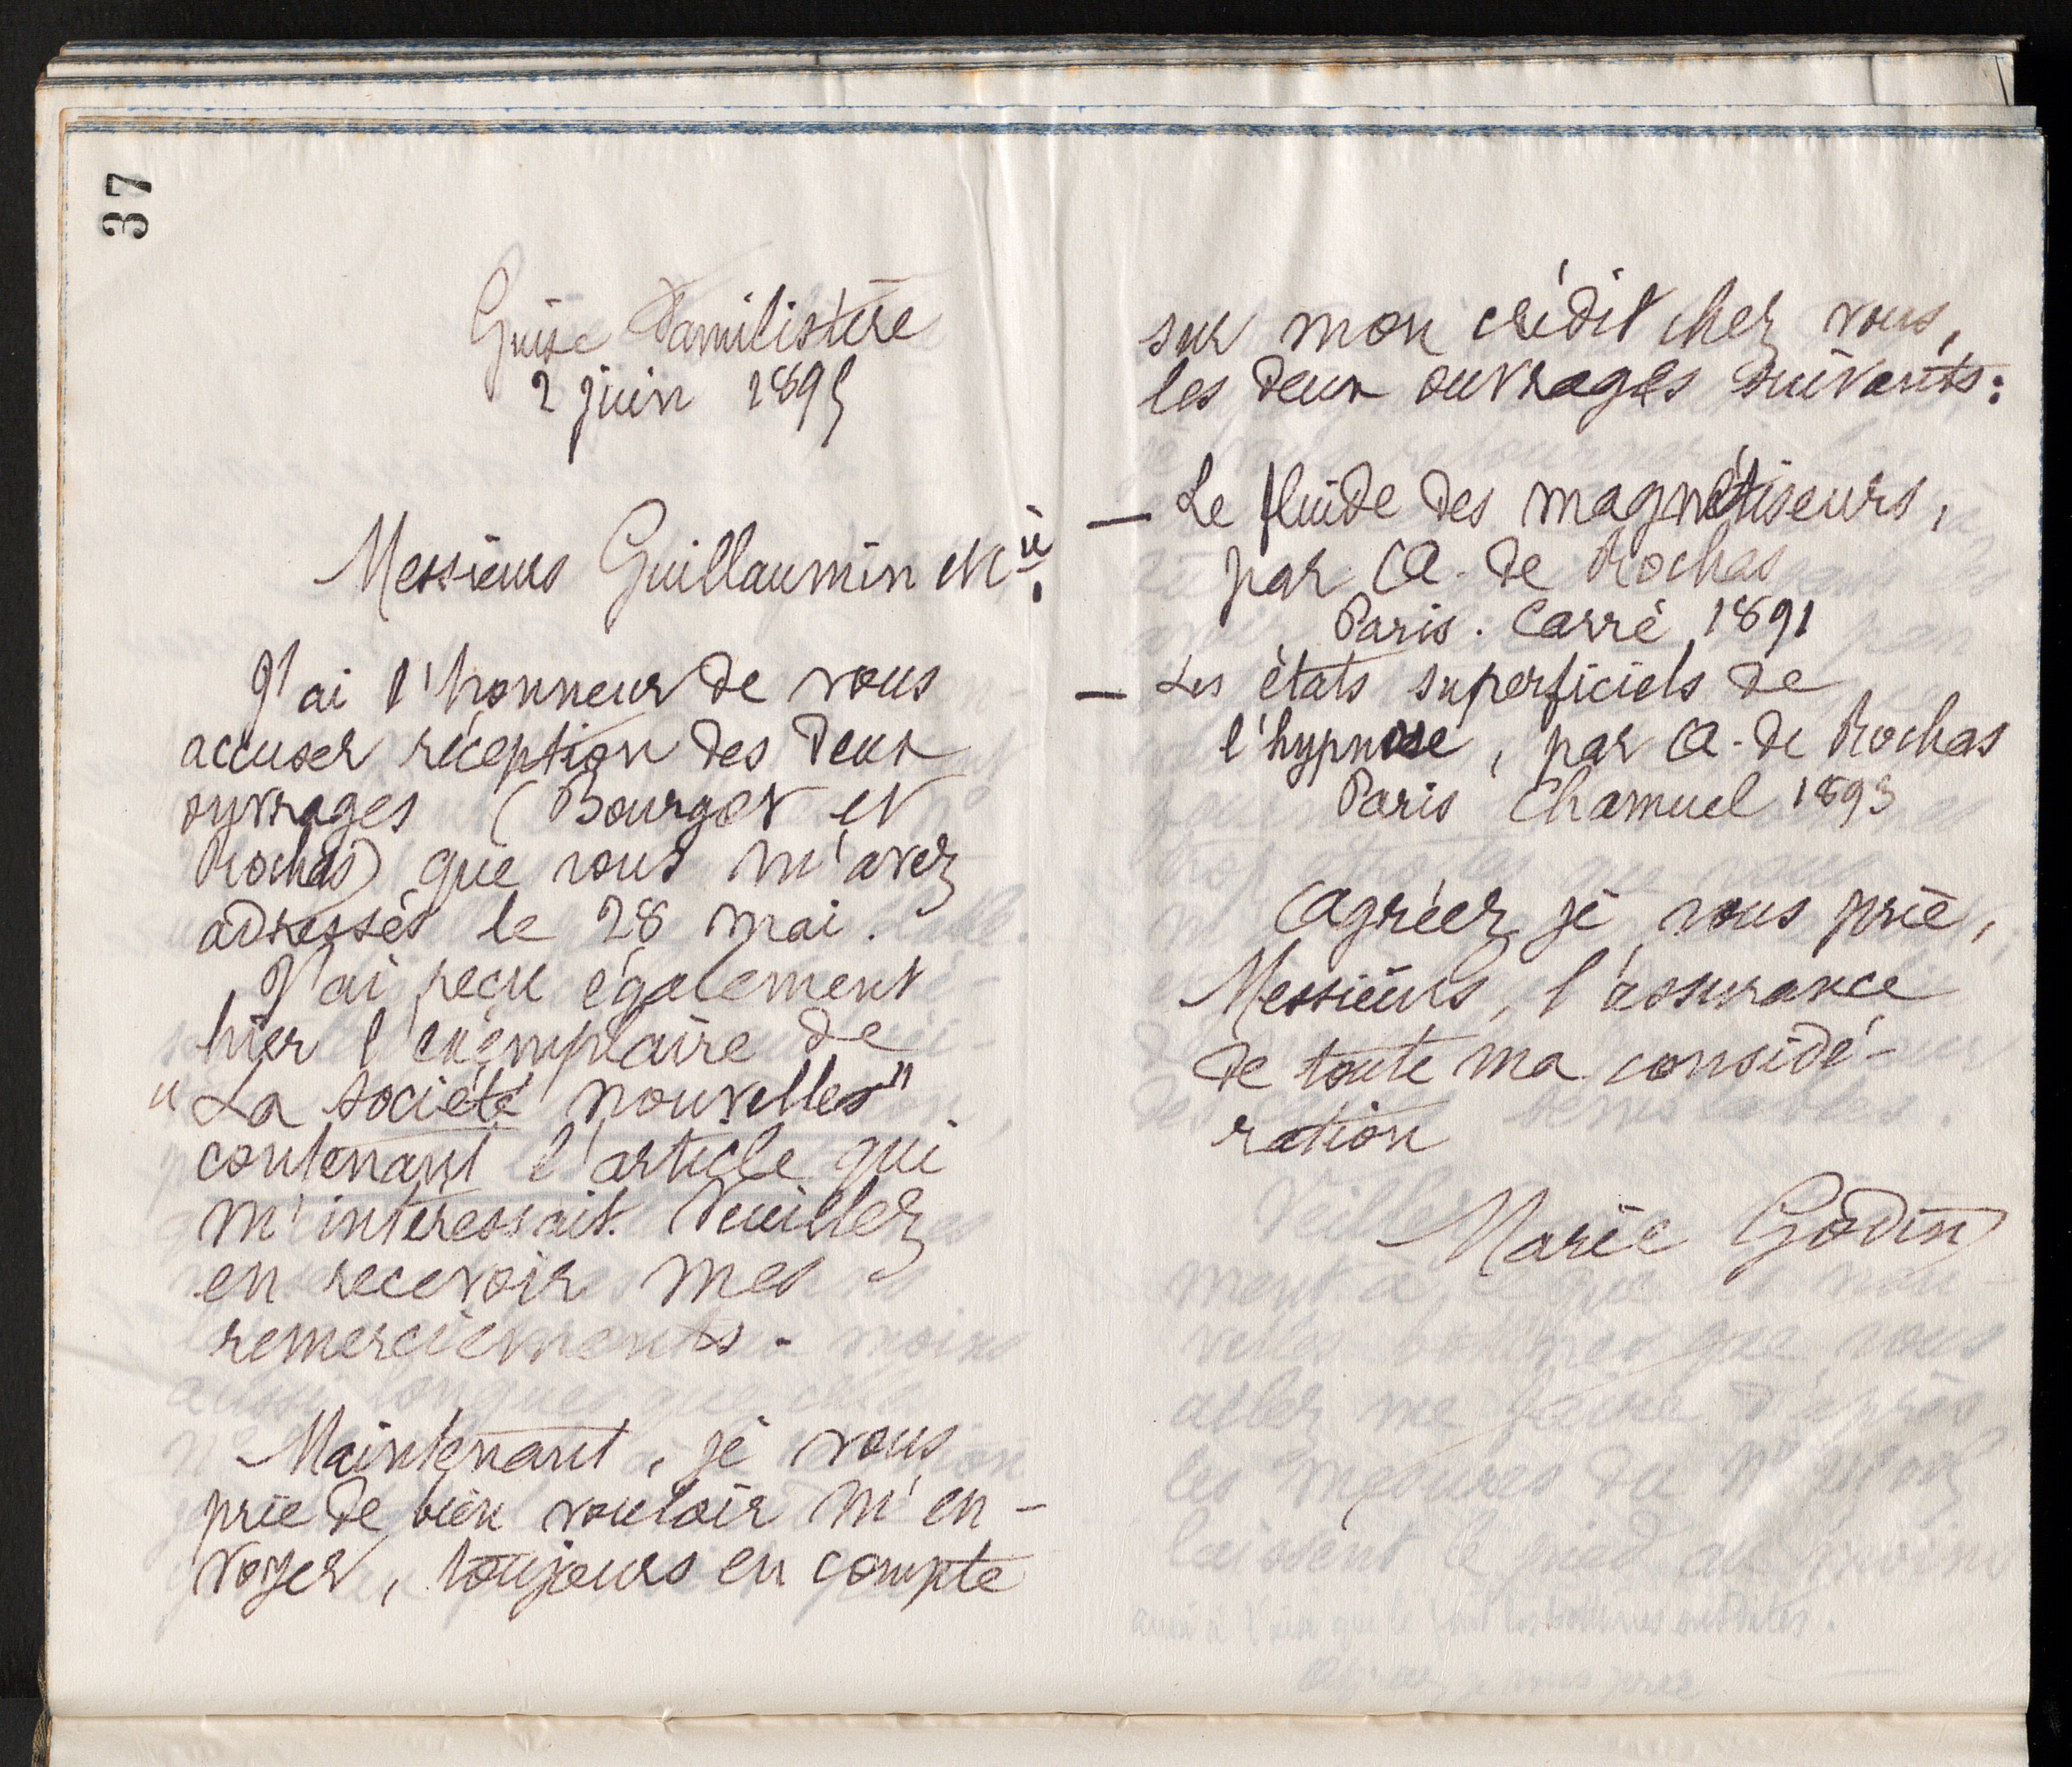 37
Guise Familistère
2 juin 1895
Messieurs Guillaumin et Cie.
J'ai l'honneur de vous
accuser réception des deux
ouvrages (Bourget et
Rochas) que vous m'avez
adressés le 28 mai.
J'ai reçu également
hier l'exemplaire de
"La Société nouvelle"
contenant l'article qui
m'intéressait. Veuillez
en recevoir mes
remerciements.
Maintenant, je vous
prie de bien vouloir m'en-
voyer, toujours en compte
sur mon crédit chez vous,
les deux ouvrages suivants:
— Le fluide des magnétiseurs,
par A. de Rochas
Paris. Carré, 1891
— Les états superficiels de
l'hypnose, par A. de Rochas
Paris Chamuel 1893
Agréez, je vous prie,
Messieurs, l'assurance
de toute ma considé-
ration
Marie Godin